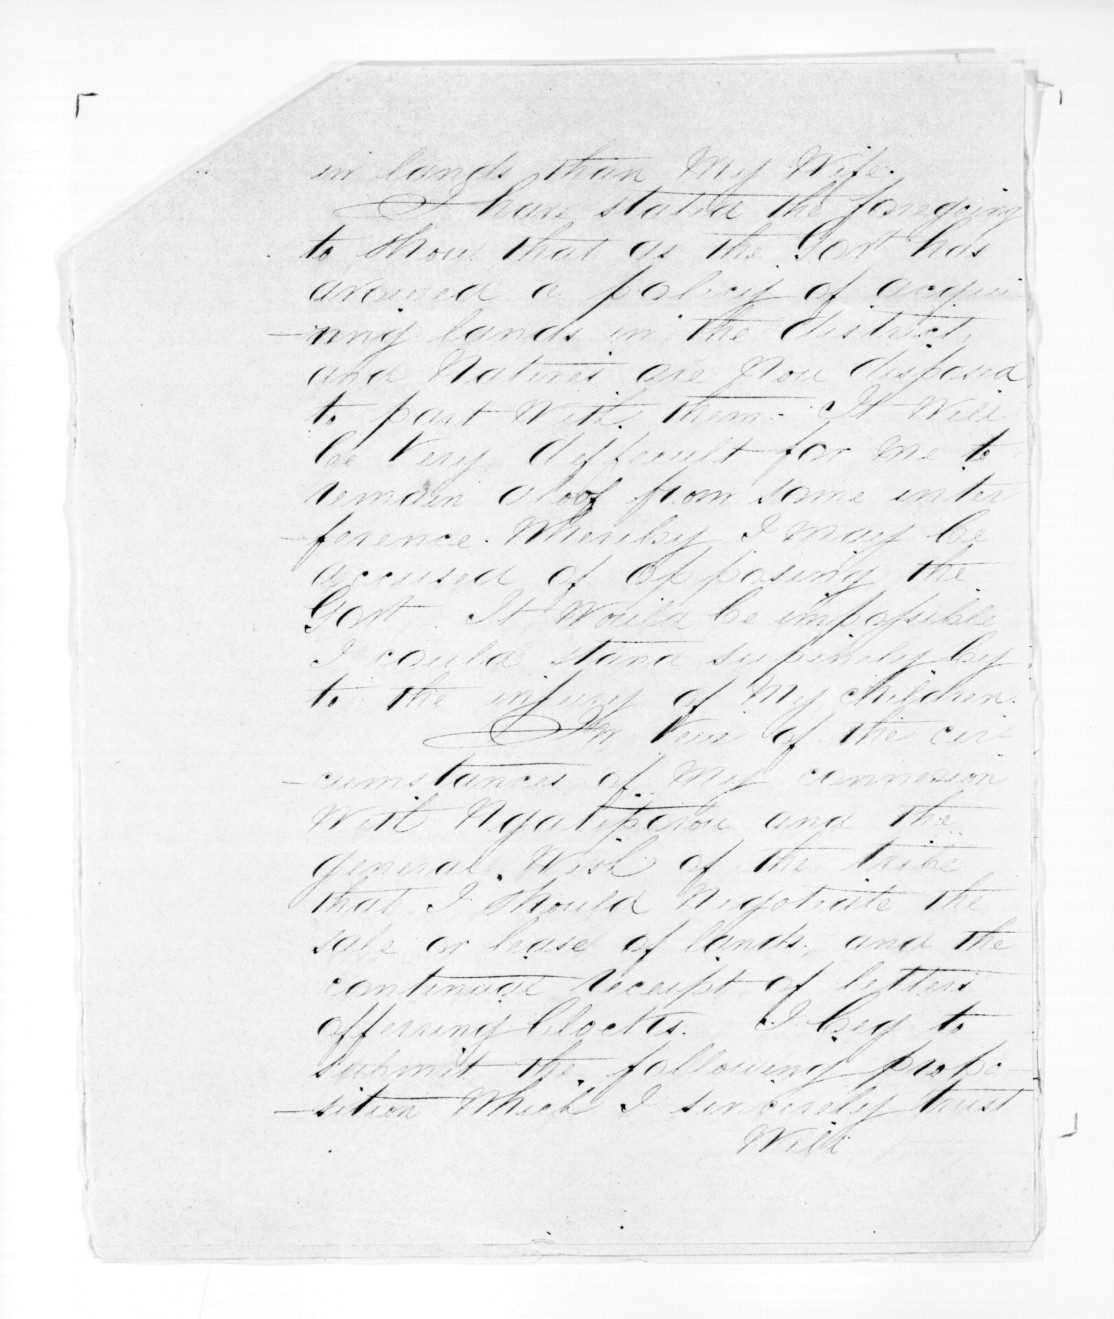 in lands than My Wife.
I have stated the foregoing
to show that as the Govt has
avowed a policy of acqui
-ring lands in the district,
and Natives are Now disposed
to part With them. It Will
be Very difficult for Me to
remain aloof from some inter
-ference. Whereby I may be
accused of opposing the
Govt. It Would be impossible
I could stand supinely by
to the injury of My children.
In View of the cir
-cumstances of My connexion
With Ngatiporou and the
general Wish of the tribe
that I should Negotiate the
sale or lease of lands, and the
continual receipt of letters
offerring blocks. I beg to
submit the following propo
-sition Which I sincerely trust
Will